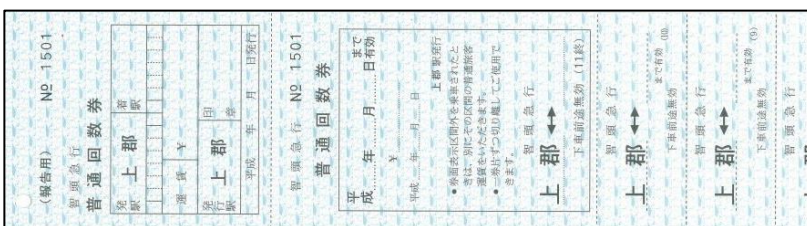 (報告用) № 1501
智頭急行
普通回数券
発駅 上郡 着駅
運賃 ¥
発行駅 上郡 印章
平成 年 月 日発行
智頭急行 № 1501
普通回数券
平成 年 月 日 まで有効
¥
平成 年 月 日
上郡駅発行
•券面表示区間外を乗車されたと
きは、別にその区間の普通旅客
運賃をいただきます。
•一券片ずつ切り離してご使用で
きます。
智頭急行
上郡 ↔
下車前途無効 (11終)
まで有効 (10)
智頭急行
上郡 ↔
下車前途無効
まで有効 (9)
智頭急行
上郡 ↔
下車前途無効
智頭急行